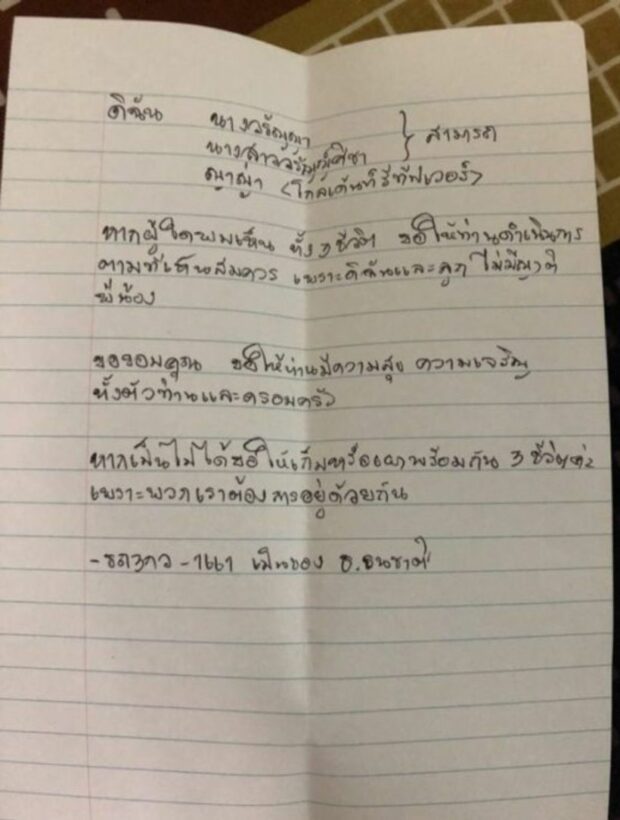 ดิฉัน นางวรัญญา } สามารถ
นางสาว
ญาญ่า (โกลเด้นท์รีทีฟเวอร์)
หากผู้ใดพบเห็น ทั้ง 3 ชีวิต ขอให้ท่านดำเนินการ
ตามที่เห็นสมควร เพราะดิฉันและลูก ไม่มีญาติ
พี่น้อง
ขอขอบคุณ ขอให้ท่านมีความสุข ความเจริญ
ทั้งตัวท่านและครอบครัว
หากเป็นไปได้ขอให้เก็บหรือเผาพร้อมกัน 3 ชีวิต
เพราะพวกเราต้องการอยู่ด้วยกัน
-รถ 3กว -1661 เป็นของ ธ.ธนชาติ